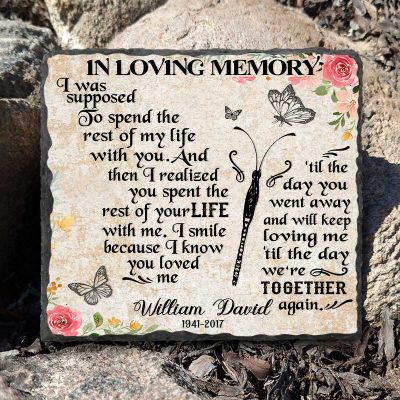 IN LOVING MEMORY
I was
supposed
To spend the
rest of my life
with you. And
then I realized
you spent the
rest of your LIFE
with me. I smile
because I know
you loved
me
'til the
day you
went away
and will keep
loving me
'til the day
we're
TOGETHER
again.
William David
1941-2017